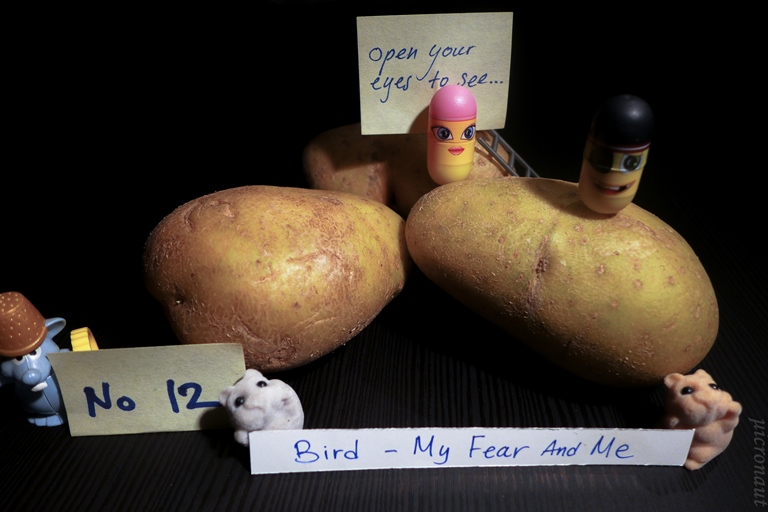 Open your
eyes to see...
No 12
Bird - My Fear And Me
µicronaut